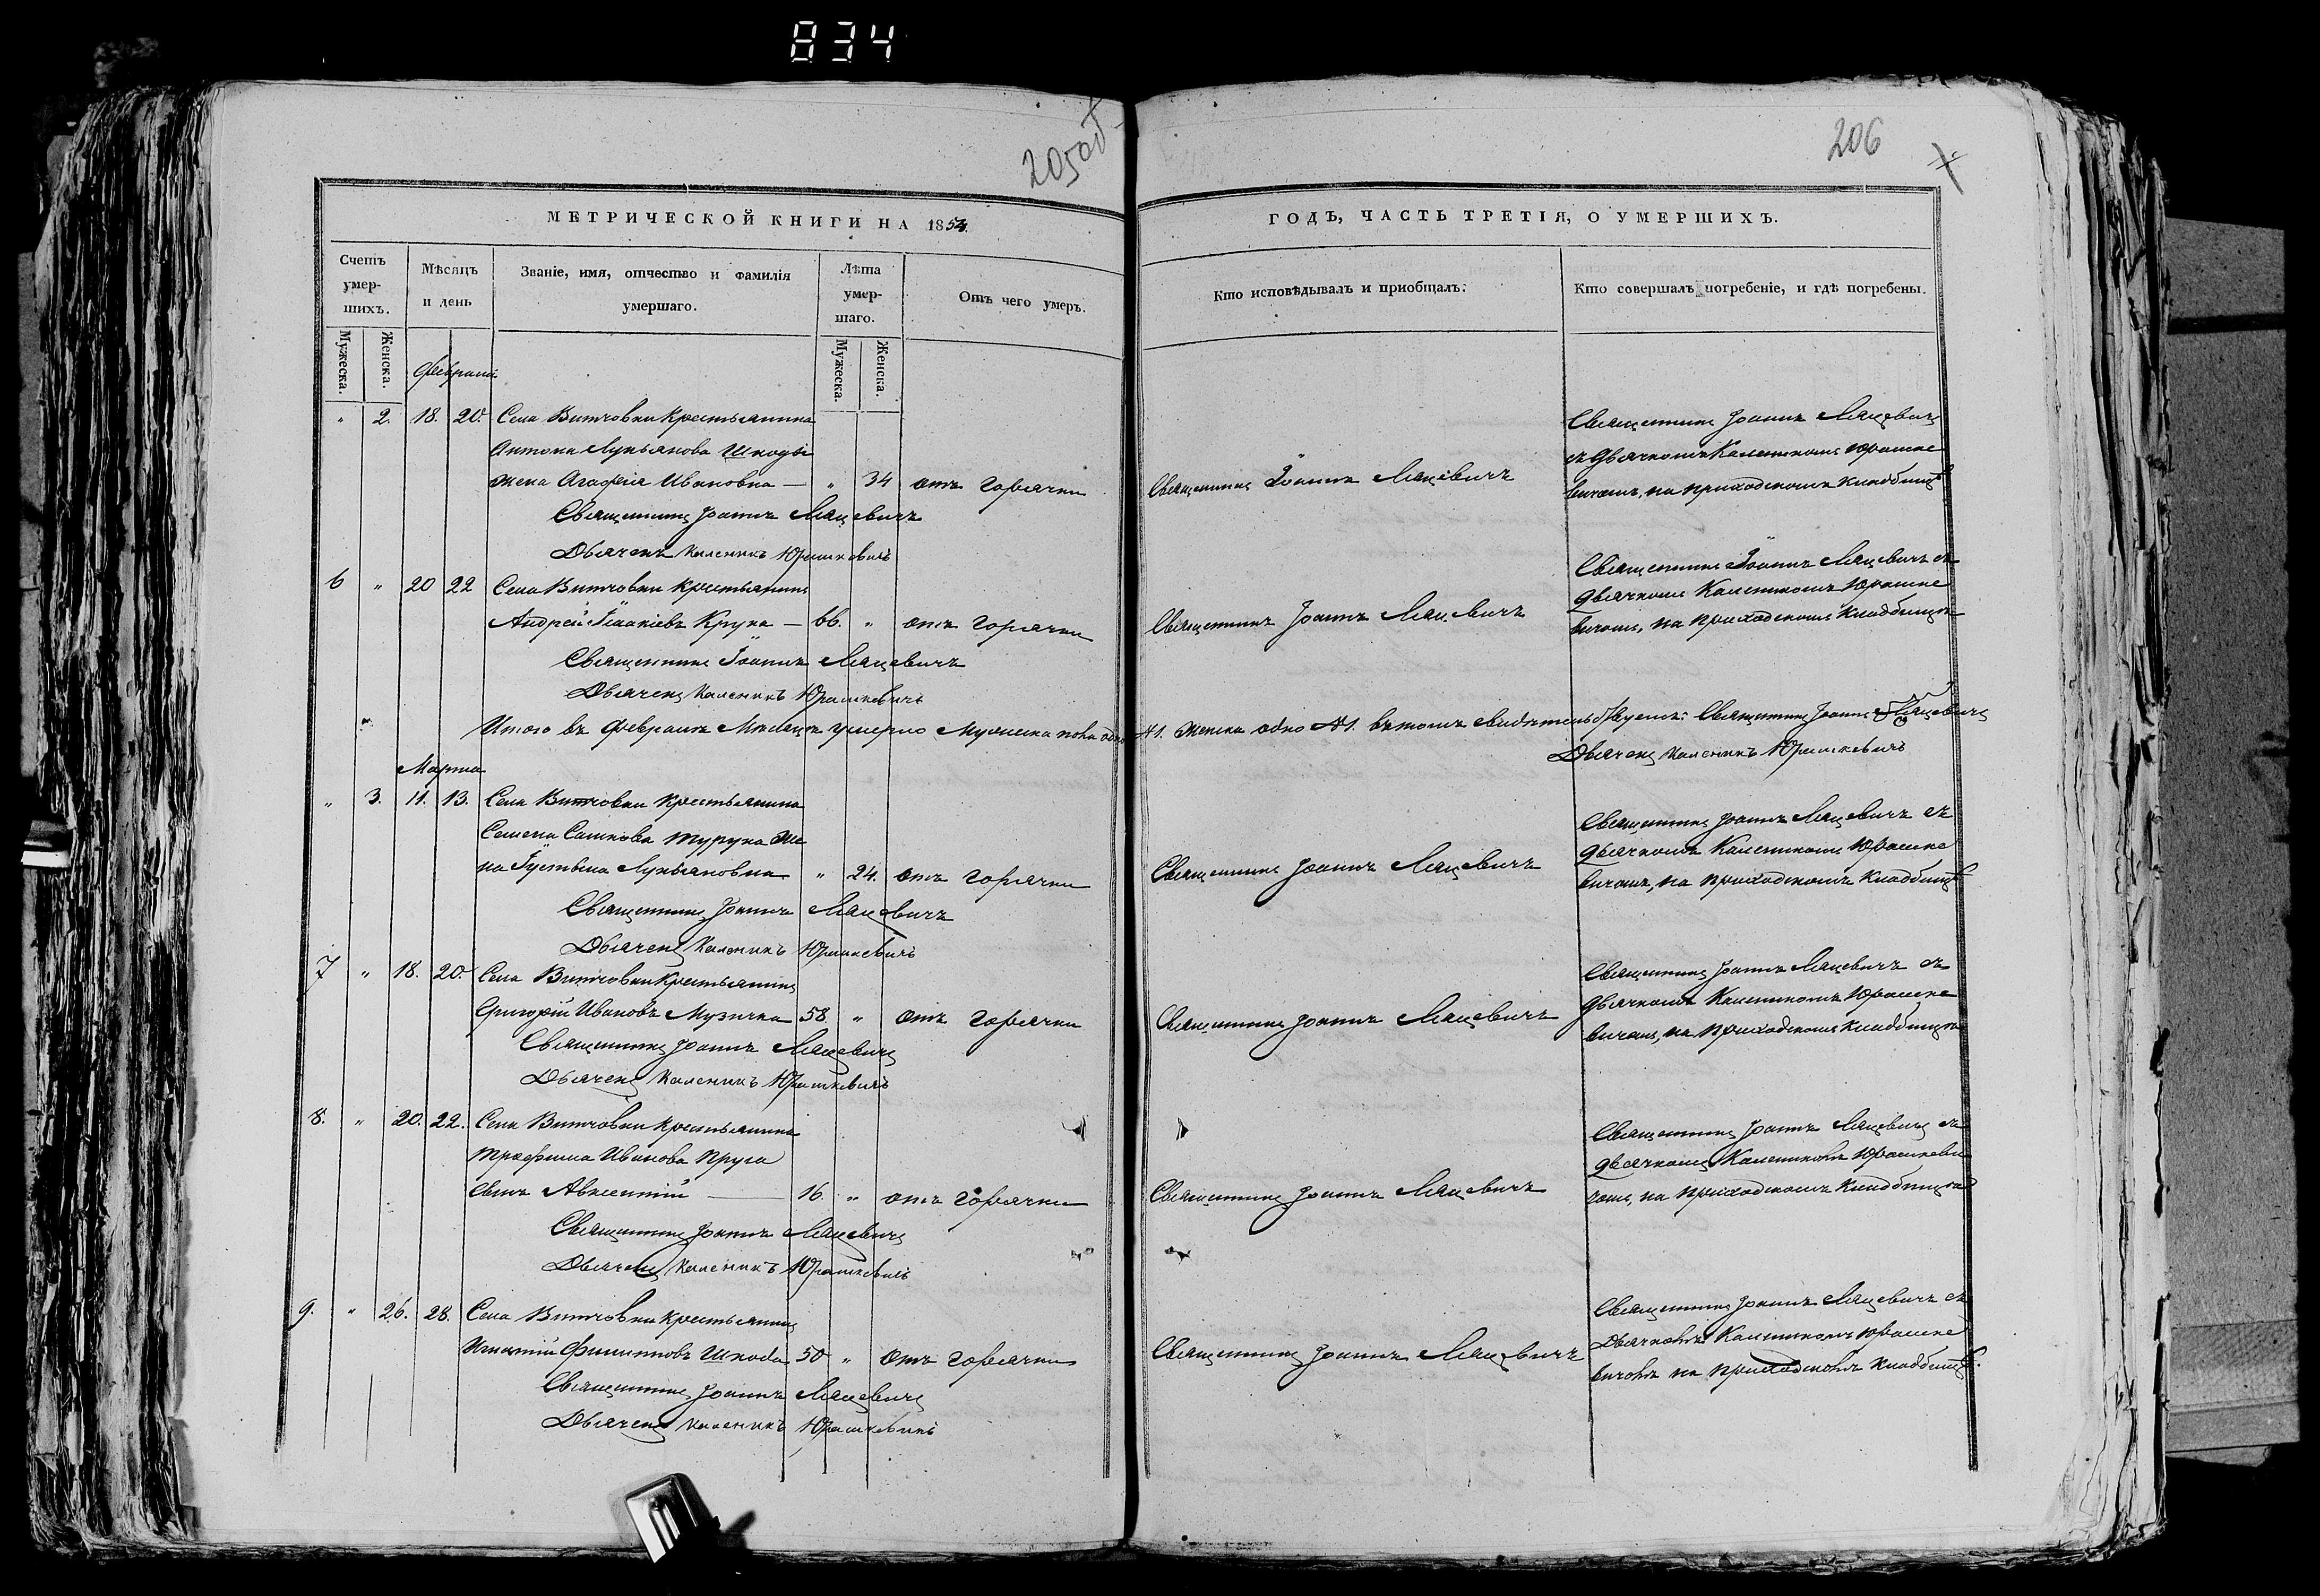 834
205об
206
МЕТРИЧЕСКОЙ КНИГИ НА 1854.
ГОДЪ, ЧАСТЬ ТРЕТІЯ, О УМЕРШИХЪ.
Счетъ умер-шихъ.
Мѣсяцъ и день
Званіе, имя, отчество и фамилія умершаго.
Лѣта умер-шаго.
Отъ чего умеръ.
Кто исповѣдывалъ и приобщалъ.
Кто совершалъ погребеніе, и гдѣ погребены.
Мужеска. Женска.
Мужеска. Женска.
Февраля
" 2. 18. 20. Села Витчовки крестьянина
Антона Лукьянова Шкоды
жена Агафія Ивановна — " 34 отъ горячки
Священникъ Іоаннъ Мацевичъ
Священникъ Іоаннъ Мацевичъ
съ дьячкомъ Каленикомъ Юрашке
вичомъ, на приходскомъ кладбищѣ
Священникъ Іоаннъ Мацевичъ
Дьячекъ Каленикъ Юрашкевичъ
6 " 20 22 Села Витчовки крестьянинъ
Андрей Исаакіевъ Крука — 66. " отъ горячки
Священникъ Іоаннъ Мацевичъ
Священникъ Іоаннъ Мацевичъ съ
дьячкомъ Каленикомъ Юрашке
вичомъ, на приходскомъ кладбищѣ
Священникъ Іоаннъ Мацевичъ
Дьячекъ Каленикъ Юрашкевичъ
Итого въ Февралѣ Мѣсяцѣ умерло Мужеска пола одно №1. Женска одно №1. въ томъ свидѣтельствуемъ: Священникъ Іоаннъ Мацевичъ
Дьячекъ Каленикъ Юрашкевичъ
Марта
" 3. 11. 13. Села Витчовки крестьянина
Семена Сашкова Турука же
на Іустина Лукьяновна " 24. отъ горячки
Священникъ Іоаннъ Мацевичъ
Священникъ Іоаннъ Мацевичъ съ
дьячкомъ Каленикомъ Юрашке
вичомъ, на приходскомъ кладбищѣ
Священникъ Іоаннъ Мацевичъ
Дьячекъ Каленикъ Юрашкевичъ
7 " 18. 20. Села Витчовки крестьянинъ
Григорій Ивановъ Музичка 58 " отъ горячки
Священникъ Іоаннъ Мацевичъ
Священникъ Іоаннъ Мацевичъ съ
дьячкомъ Каленикомъ Юрашке
вичомъ, на приходскомъ кладбищѣ
Священникъ Іоаннъ Мацевичъ
Дьячекъ Каленикъ Юрашкевичъ
8. " 20. 22. Села Витчовки крестьянина
Трофима Иванова Пруга
сынъ Авксентій — 16. " отъ горячки
Священникъ Іоаннъ Мацевичъ
Священникъ Іоаннъ Мацевичъ съ
дьячкомъ Каленикомъ Юрашкеви
чомъ, на приходскомъ кладбищѣ
Священникъ Іоаннъ Мацевичъ
Дьячекъ Каленикъ Юрашкевичъ
9. " 26. 28. Села Витчовки крестьянинъ
Игнатій Филиповъ Шкода 50 " отъ горячки
Священникъ Іоаннъ Мацевичъ
Священникъ Іоаннъ Мацевичъ съ
Дьячкомъ Каленикомъ Юрашке
вичомъ на приходскомъ кладбищѣ.
Священникъ Іоаннъ Мацевичъ
Дьячекъ Каленикъ Юрашкевичъ